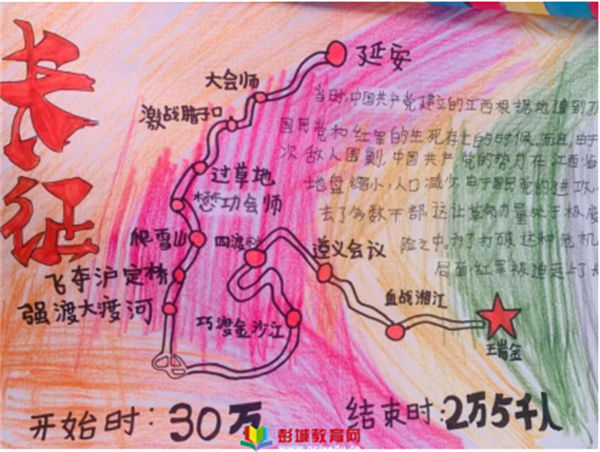 长征
延安
大会师
激战腊子口
过草地
懋功会师
爬雪山
飞夺沪定桥
强渡大渡河
四渡
巧渡金沙江
遵义会议
血战湘江
瑞金
当时,中国共产党建立的江西根据地遭到
国民党和红军的生死存亡的时候,而且,由于
次敌人围剿,中国共产党的势力在江西
地盘缩小,人口减少,由于国民党的进攻,
去了多数干部这让革命力量处于极度
险之中,为了打破这种危机
局面,红军被迫
开始时:30万
结束时:2万5千人
彭城教育网